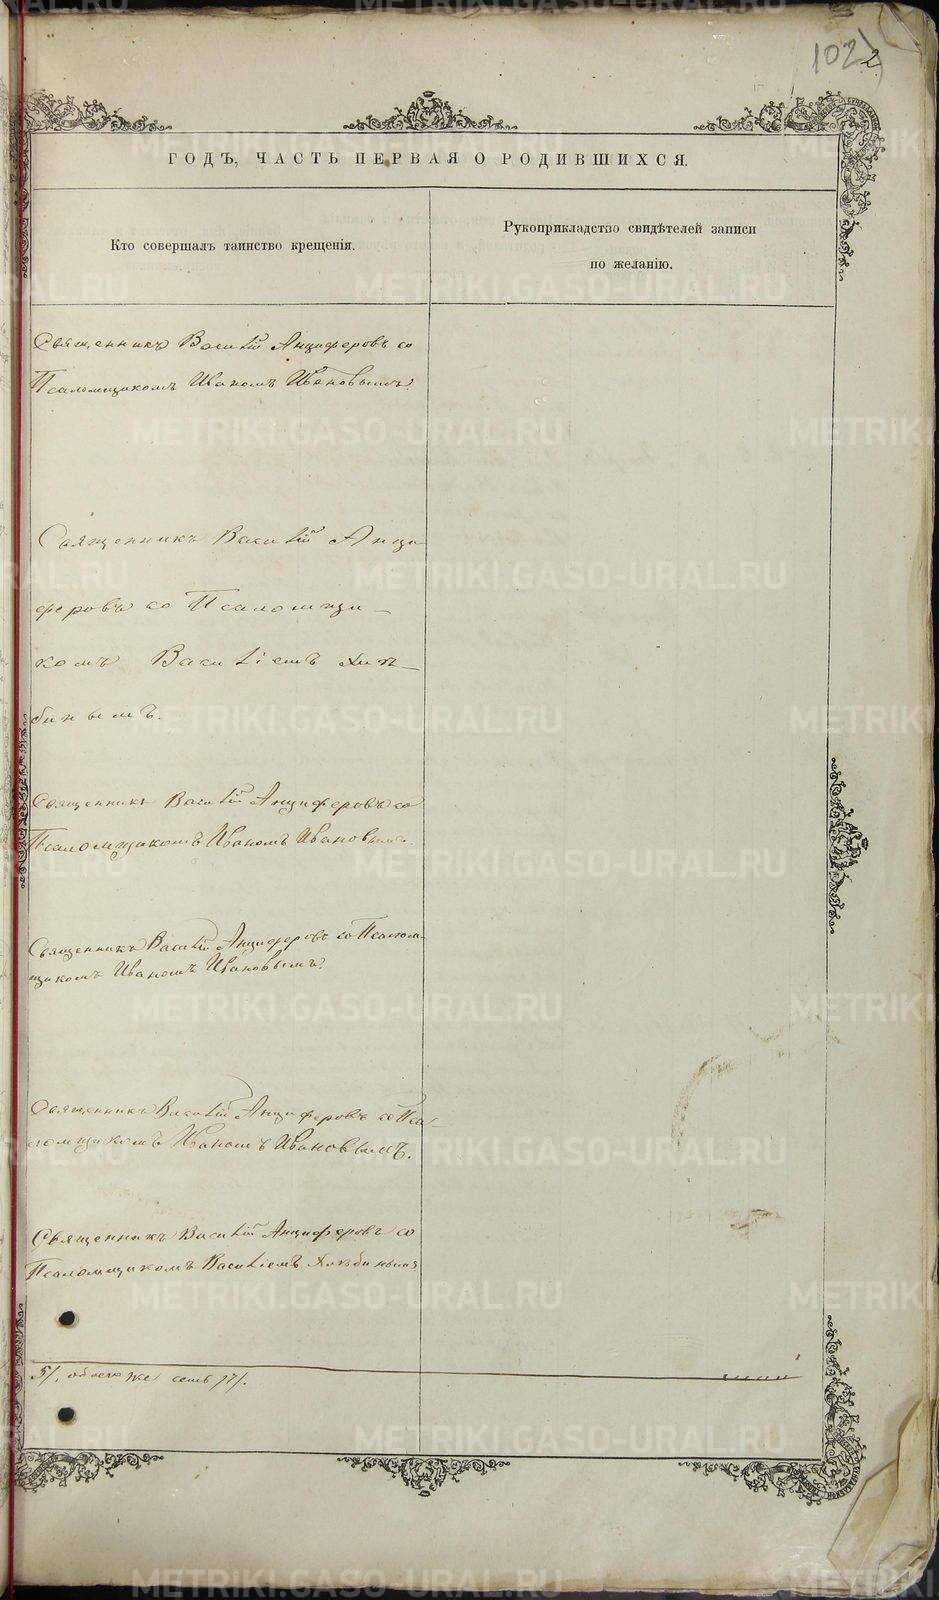 102
2.
ГОДЪ, ЧАСТЬ ПЕРВАЯ О РОДИВШИХСЯ.
Кто совершалъ таинство крещенія.
Рукоприкладство свидѣтелей записи
по желанію.
Священникъ Василій Анциферовъ со
Псаломщикомъ Иваномъ Ивановымъ.
Священникъ Василій Анци-
феровъ со Псаломщи-
комъ Василіемъ Хлѣ-
бинымъ.
Священникъ Василій Анциферовъ со
Псаломщикомъ Иваномъ Ивановымъ.
Священникъ Василій Анциферовъ со Псалом-
щикомъ Иваномъ Ивановымъ.
Священникъ Василій Анциферовъ со Пса-
ломщикомъ Иваномъ Ивановымъ.
Священникъ Василій Анциферовъ со
Псаломщикомъ Василіемъ Хлѣбинымъ
5/. обоего же семь /7/.
METRIKI.GASO-URAL.RU